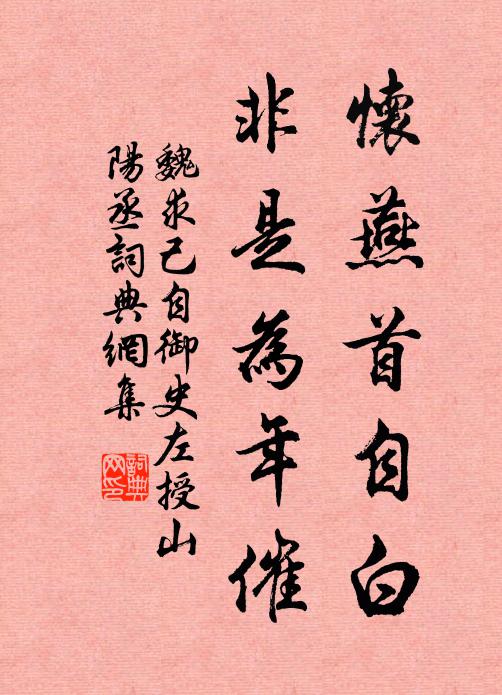 懷燕首自白
非是為年催
魏求己自御史左授山
陽丞詞典網集
詞典
网印